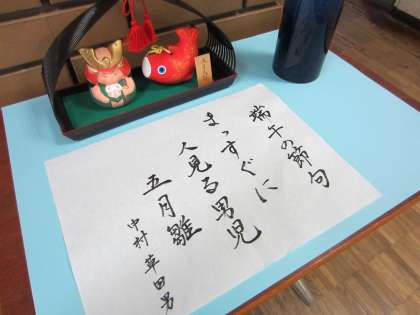 端午の節句
まっすぐに
人見る男児
五月雛
中村草田男